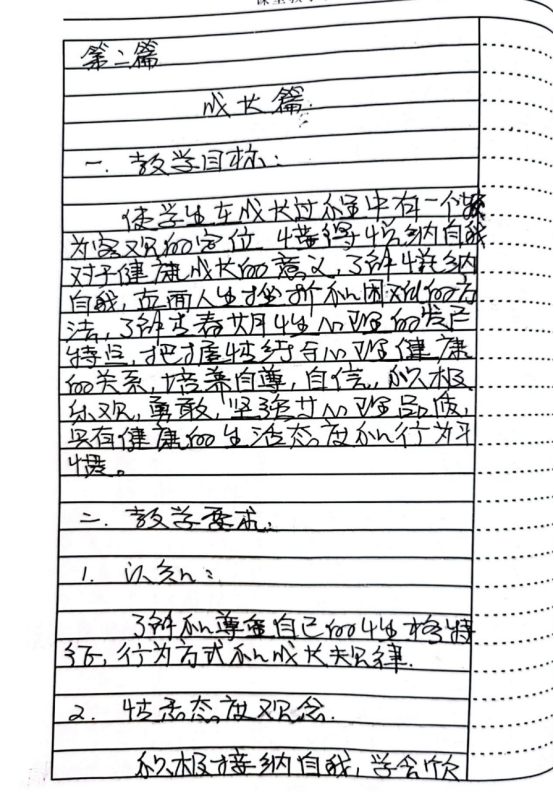 第二篇
成长篇.
一. 教学目标:
使学生在成长过程中有一个较
为客观的定位 懂得悦纳自我
对于健康成长的意义,了解悦纳
自我,直面人生挫折和困难的方
法,了解青春期性心理的发展
特点,把握性结与心理健康
的关系,培养自尊,自信,积极
乐观,勇敢,坚强其心理品质,
具有健康的生活态度和行为习
惯。
二. 教学要求:
1. 认知:
了解和尊重自己的性格特
征,行为方式和成长规律.
2. 情感态度观念.
积极接纳自我,学会欣